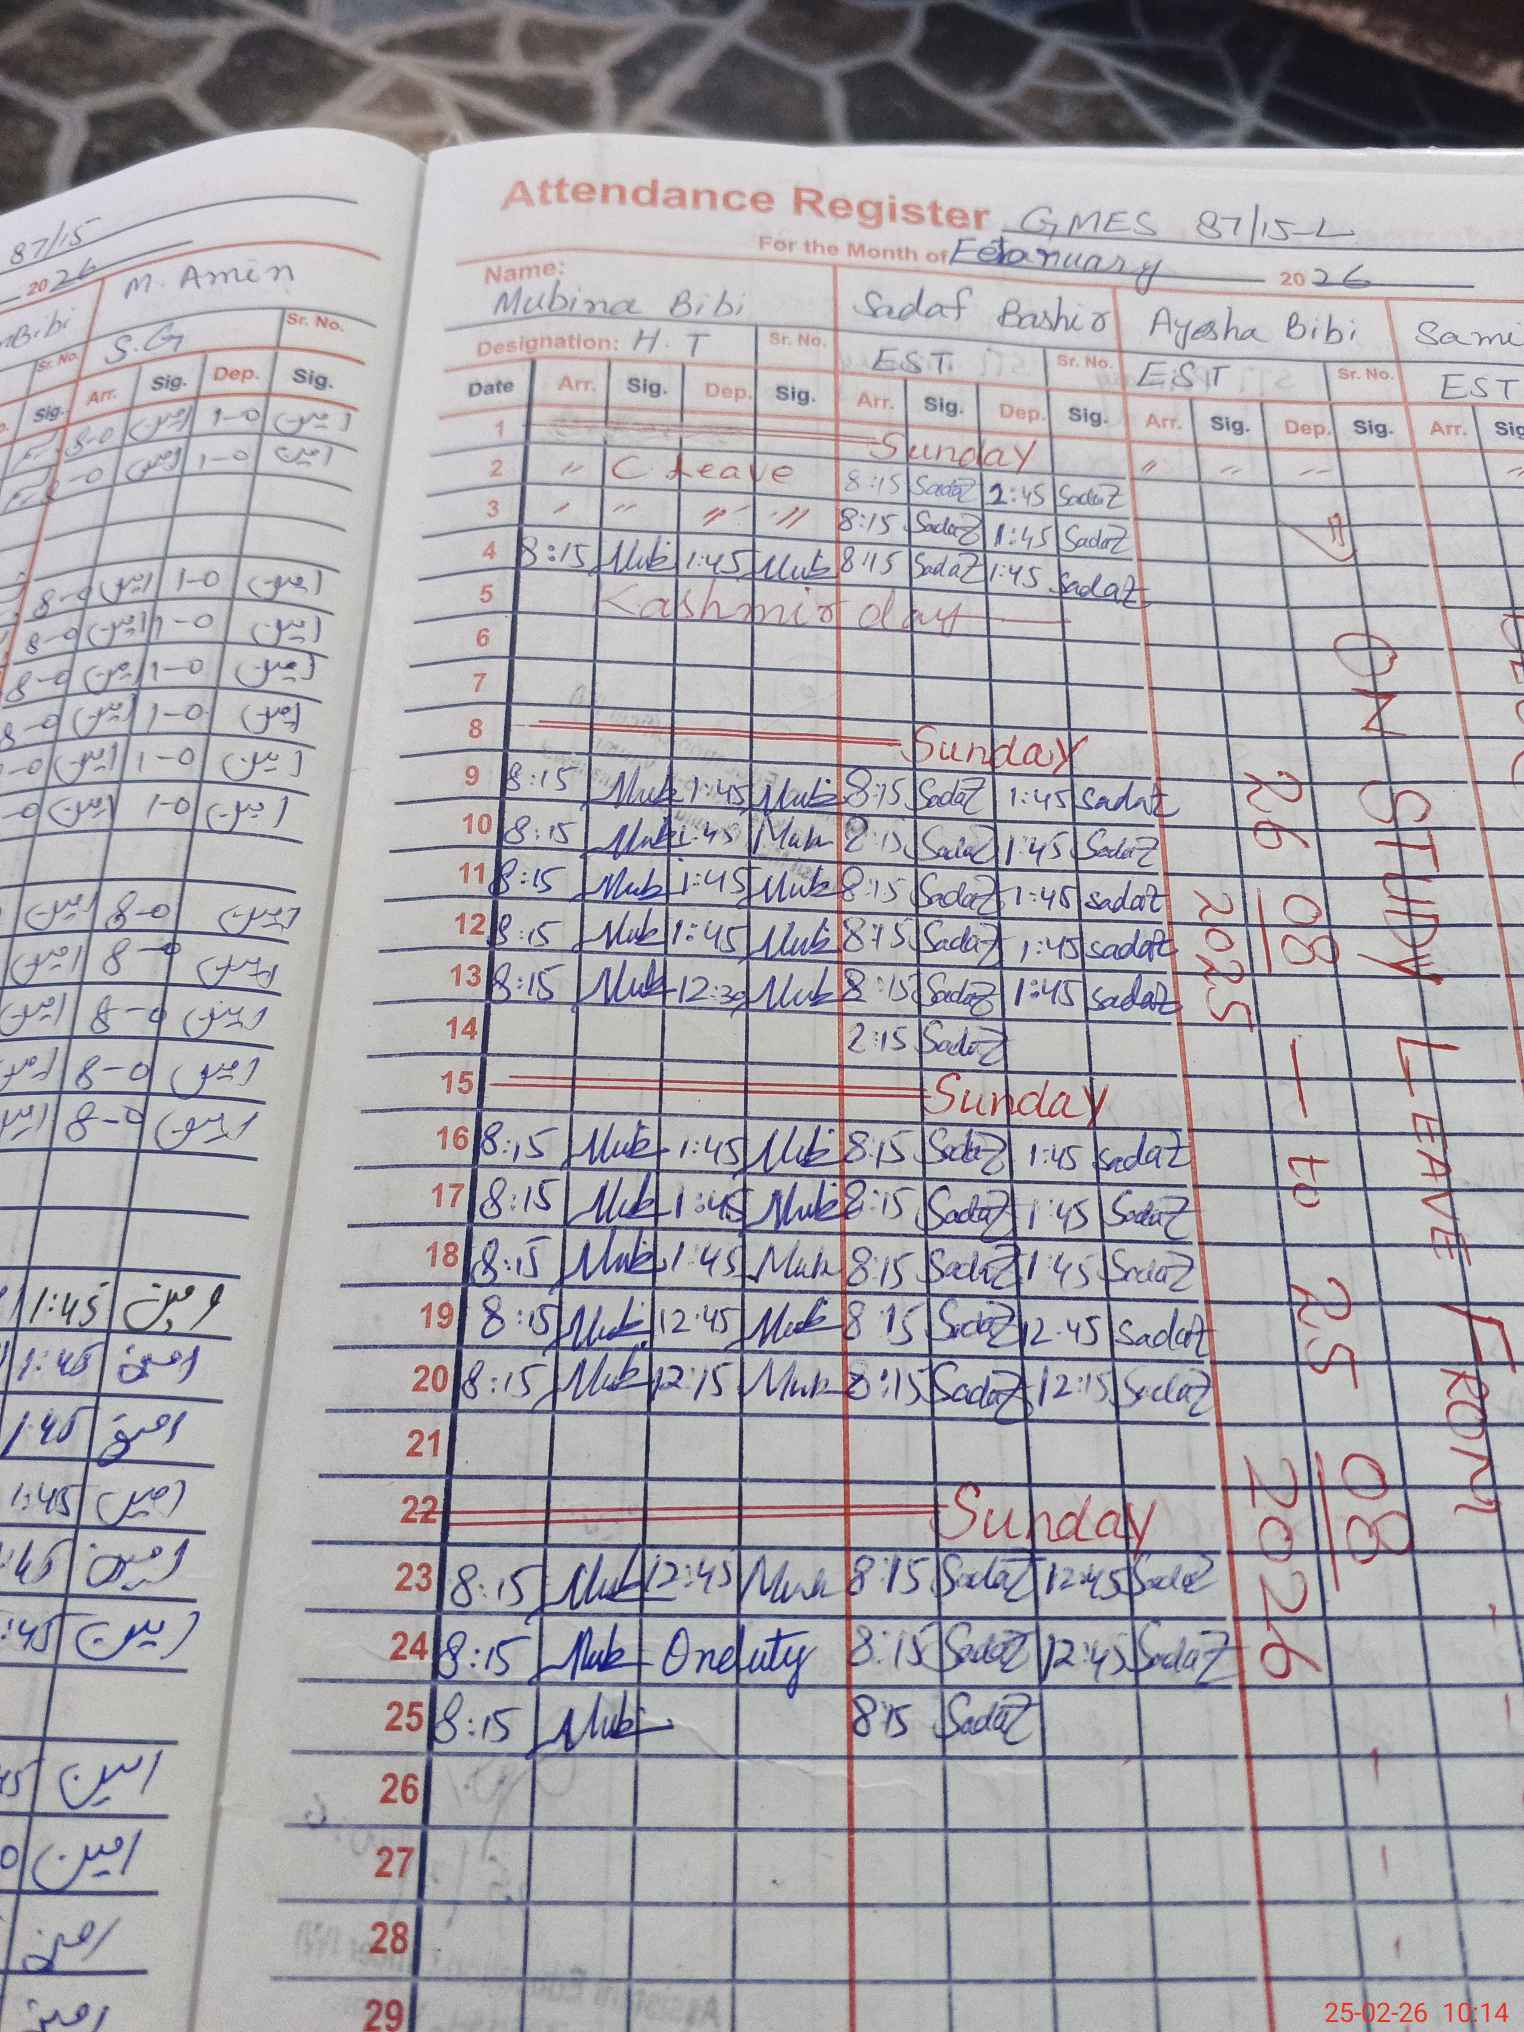 87/15
2026
M. Amin
Bibi
Sr. No.
S.G
Sr. No.
Sig. Arr. Sig. Dep. Sig.
8-0 امین 1-0 امین
امین 1-0 امین
8-0 امین 1-0 امین
8-0 امین 1-0 امین
8-0 امین 1-0 امین
8-0 امین 1-0 امین
امین 1-0 امین
امین 1-0 امین
امین 8-0 امین
امین 8-0 امین
امین 8-0 امین
8-0 امین
8-0 امین
1:45 امین
1:45 امین
1:45 امین
1:45 امین
:45 امین
:45 امین
45 امین
امین
امین
Attendance Register GMES 87/15-L
For the Month of Febranuary 2026
Name: Mubina Bibi Sadaf Bashir Ayesha Bibi Sami
Designation: H.T Sr. No. EST. Sr. No. EST Sr. No. EST
Date Arr. Sig. Dep. Sig. Arr. Sig. Dep. Sig. Arr. Sig. Dep. Sig. Arr. Sig
1 Sunday
2 " C. Leave 8:15 Sadaf 2:45 Sadaf " "
3 " " " " 8:15 Sadaf 1:45 Sadaf
4 8:15 Mub 1:45 Mub 8:15 Sadaf 1:45 Sadaf
5 Kashmir day
6
7
8 Sunday
9 8:15 Mub 1:45 Mub 8:15 Sadaf 1:45 Sadaf
10 8:15 Mub 1:45 Mub 8:15 Sadaf 1:45 Sadaf
11 8:15 Mub 1:45 Mub 8:15 Sadaf 1:45 Sadaf
12 8:15 Mub 1:45 Mub 8:15 Sadaf 1:45 Sadaf
13 8:15 Mub 12:30 Mub 8:15 Sadaf 1:45 Sadaf
14 2:15 Sadaf
15 Sunday
16 8:15 Mub 1:45 Mub 8:15 Sadaf 1:45 Sadaf
17 8:15 Mub 1:45 Mub 8:15 Sadaf 1:45 Sadaf
18 8:15 Mub 1:45 Mub 8:15 Sadaf 1:45 Sadaf
19 8:15 Mub 12:45 Mub 8:15 Sadaf 12:45 Sadaf
20 8:15 Mub 12:15 Mub 8:15 Sadaf 12:15 Sadaf
21
22 Sunday
23 8:15 Mub 12:45 Mub 8:15 Sadaf 12:45 Sadaf
24 8:15 Mub Onduty 8:15 Sadaf 12:45 Sadaf
25 8:15 Mub 8:15 Sadaf
26
27
28
29
ON STUDY LEAVE FROM
26 08 2025 — to 25 08 2026
25-02-26 10:14